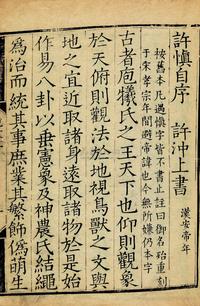 許慎自序 許沖上書 漢安帝年
按舊本凡遇慎字皆不書止註曰御名殆重刻
于宋孝宗年間避帝諱也今無所嫌仍本字
古者庖犧氏之王天下也仰則觀象
於天俯則觀法於地視鳥獸之文與
地之宜近取諸身遠取諸物於是始
作易八卦以垂憲象及神農氏結繩
爲治而統其事庶業其繁飾僞萌生